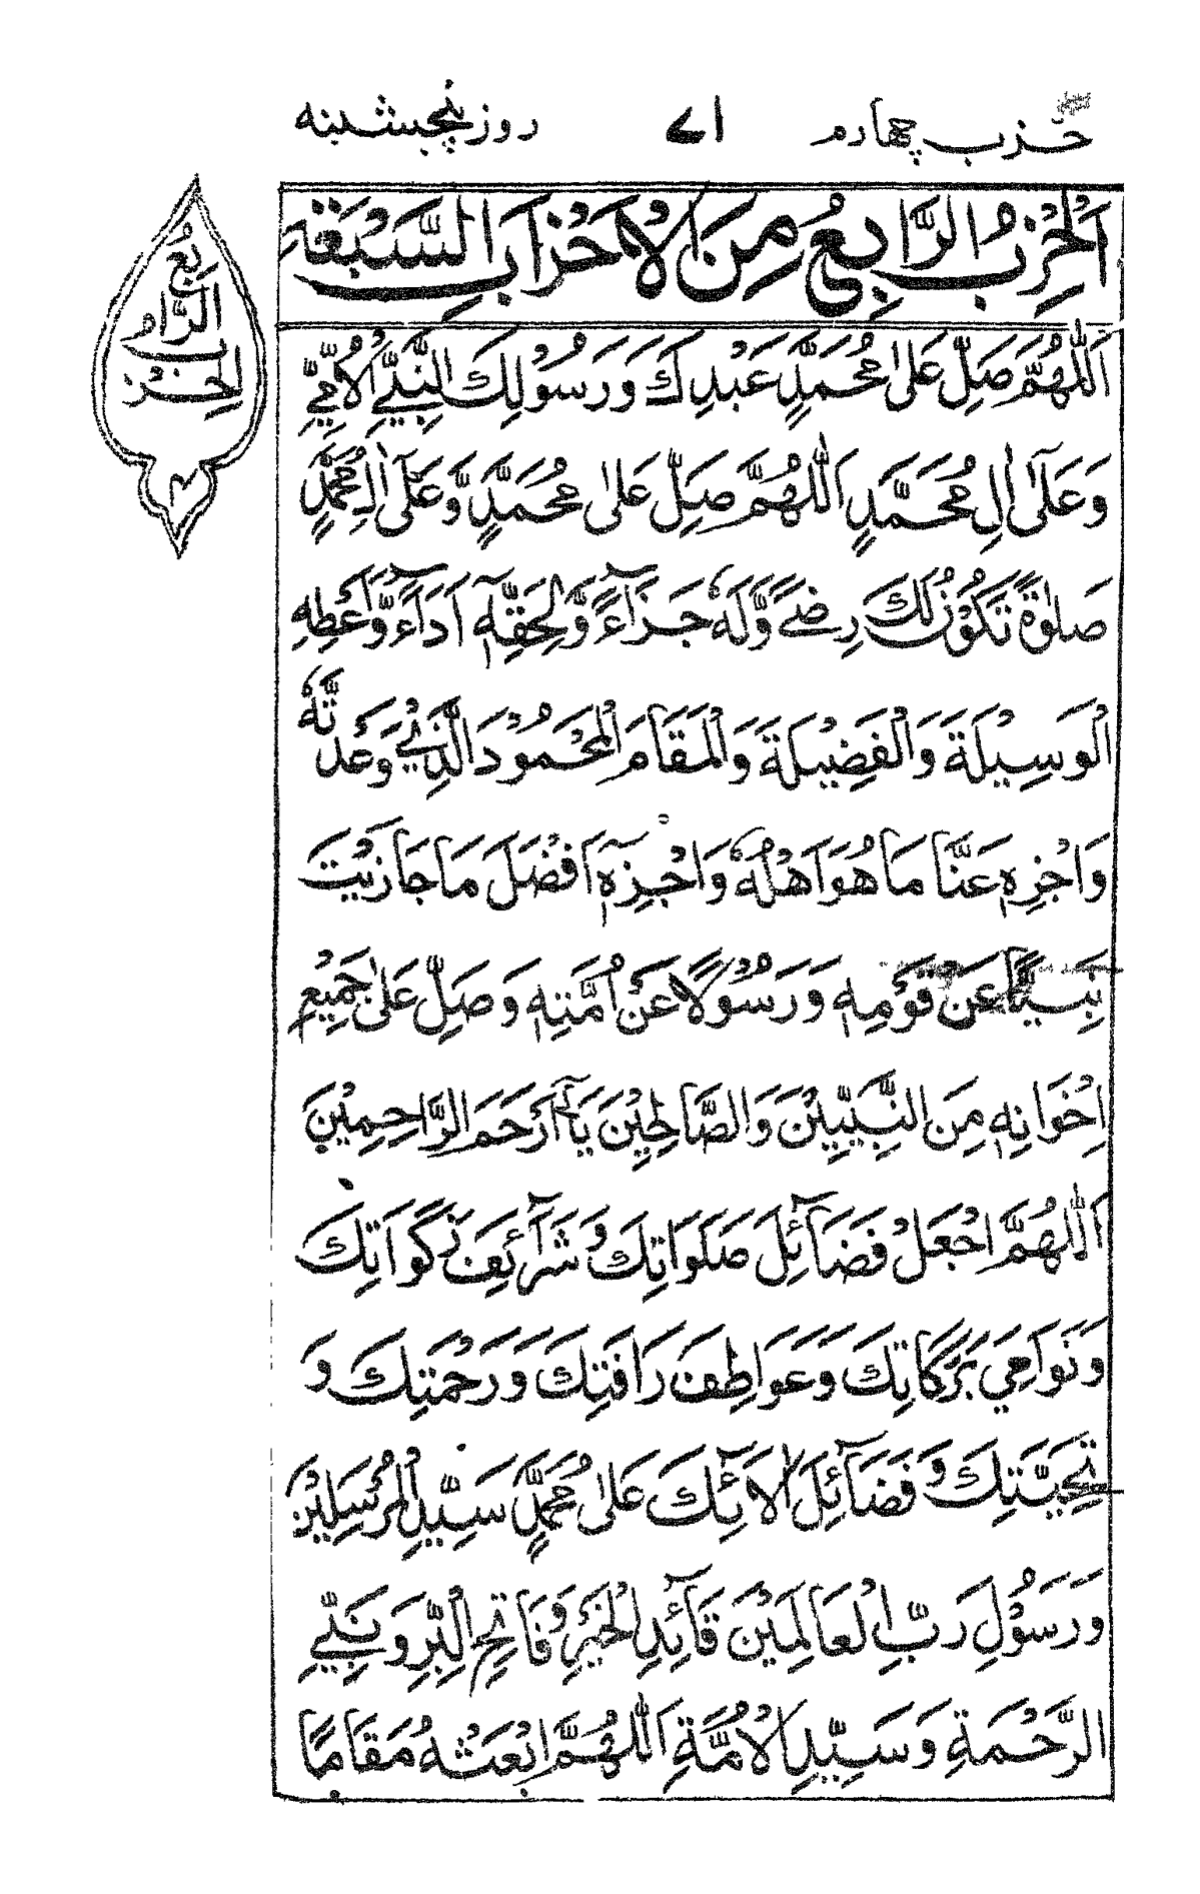 حزب چهارم ۷۱ روز پنجشنبه
اَلْحِزْبُ الرَّابِعُ مِنَ الْاَحْزَابِ السَّبْعَةِ
الحزب الرابع
اَللّٰهُمَّ صَلِّ عَلٰى مُحَمَّدٍ عَبْدِكَ وَرَسُوْلِكَ النَّبِيِّ الْاُمِّيِّ
وَعَلٰٓى اٰلِ مُحَمَّدٍ اَللّٰهُمَّ صَلِّ عَلٰى مُحَمَّدٍ وَّعَلٰٓى اٰلِ مُحَمَّدٍ
صَلٰوةً تَكُوْنُ لَكَ رِضًى وَّلَهٗ جَزَآءً وَّلِحَقِّهٖٓ اَدَآءً وَّاَعْطِهِ
الْوَسِيْلَةَ وَالْفَضِيْلَةَ وَالْمَقَامَ الْمَحْمُوْدَ الَّذِيْ وَعَدْتَّهٗ
وَاجْزِهٖ عَنَّا مَا هُوَ اَهْلُهٗ وَاجْزِهٖٓ اَفْضَلَ مَا جَازَيْتَ
نَبِيًّا عَنْ قَوْمِهٖ وَرَسُوْلًا عَنْ اُمَّتِهٖ وَصَلِّ عَلٰى جَمِيْعِ
اِخْوَانِهٖ مِنَ النَّبِيِّيْنَ وَالصَّالِحِيْنَ يَآ اَرْحَمَ الرَّاحِمِيْنَ
اَللّٰهُمَّ اجْعَلْ فَضَآئِلَ صَلَوَاتِكَ وَشَرَآئِفَ زَكَوَاتِكَ
وَنَوَامِيَ بَرَكَاتِكَ وَعَوَاطِفَ رَافَتِكَ وَرَحْمَتِكَ وَ
تَحِيَّتِكَ وَفَضَآئِلَ اٰلَآئِكَ عَلٰى مُحَمَّدٍ سَيِّدِ الْمُرْسَلِيْنَ
وَرَسُوْلِ رَبِّ الْعَالَمِيْنَ قَآئِدِ الْخَيْرِ وَفَاتِحِ الْبِرِّ وَنَبِيِّ
الرَّحْمَةِ وَسَيِّدِ الْاُمَّةِ اَللّٰهُمَّ ابْعَثْهُ مَقَامًا